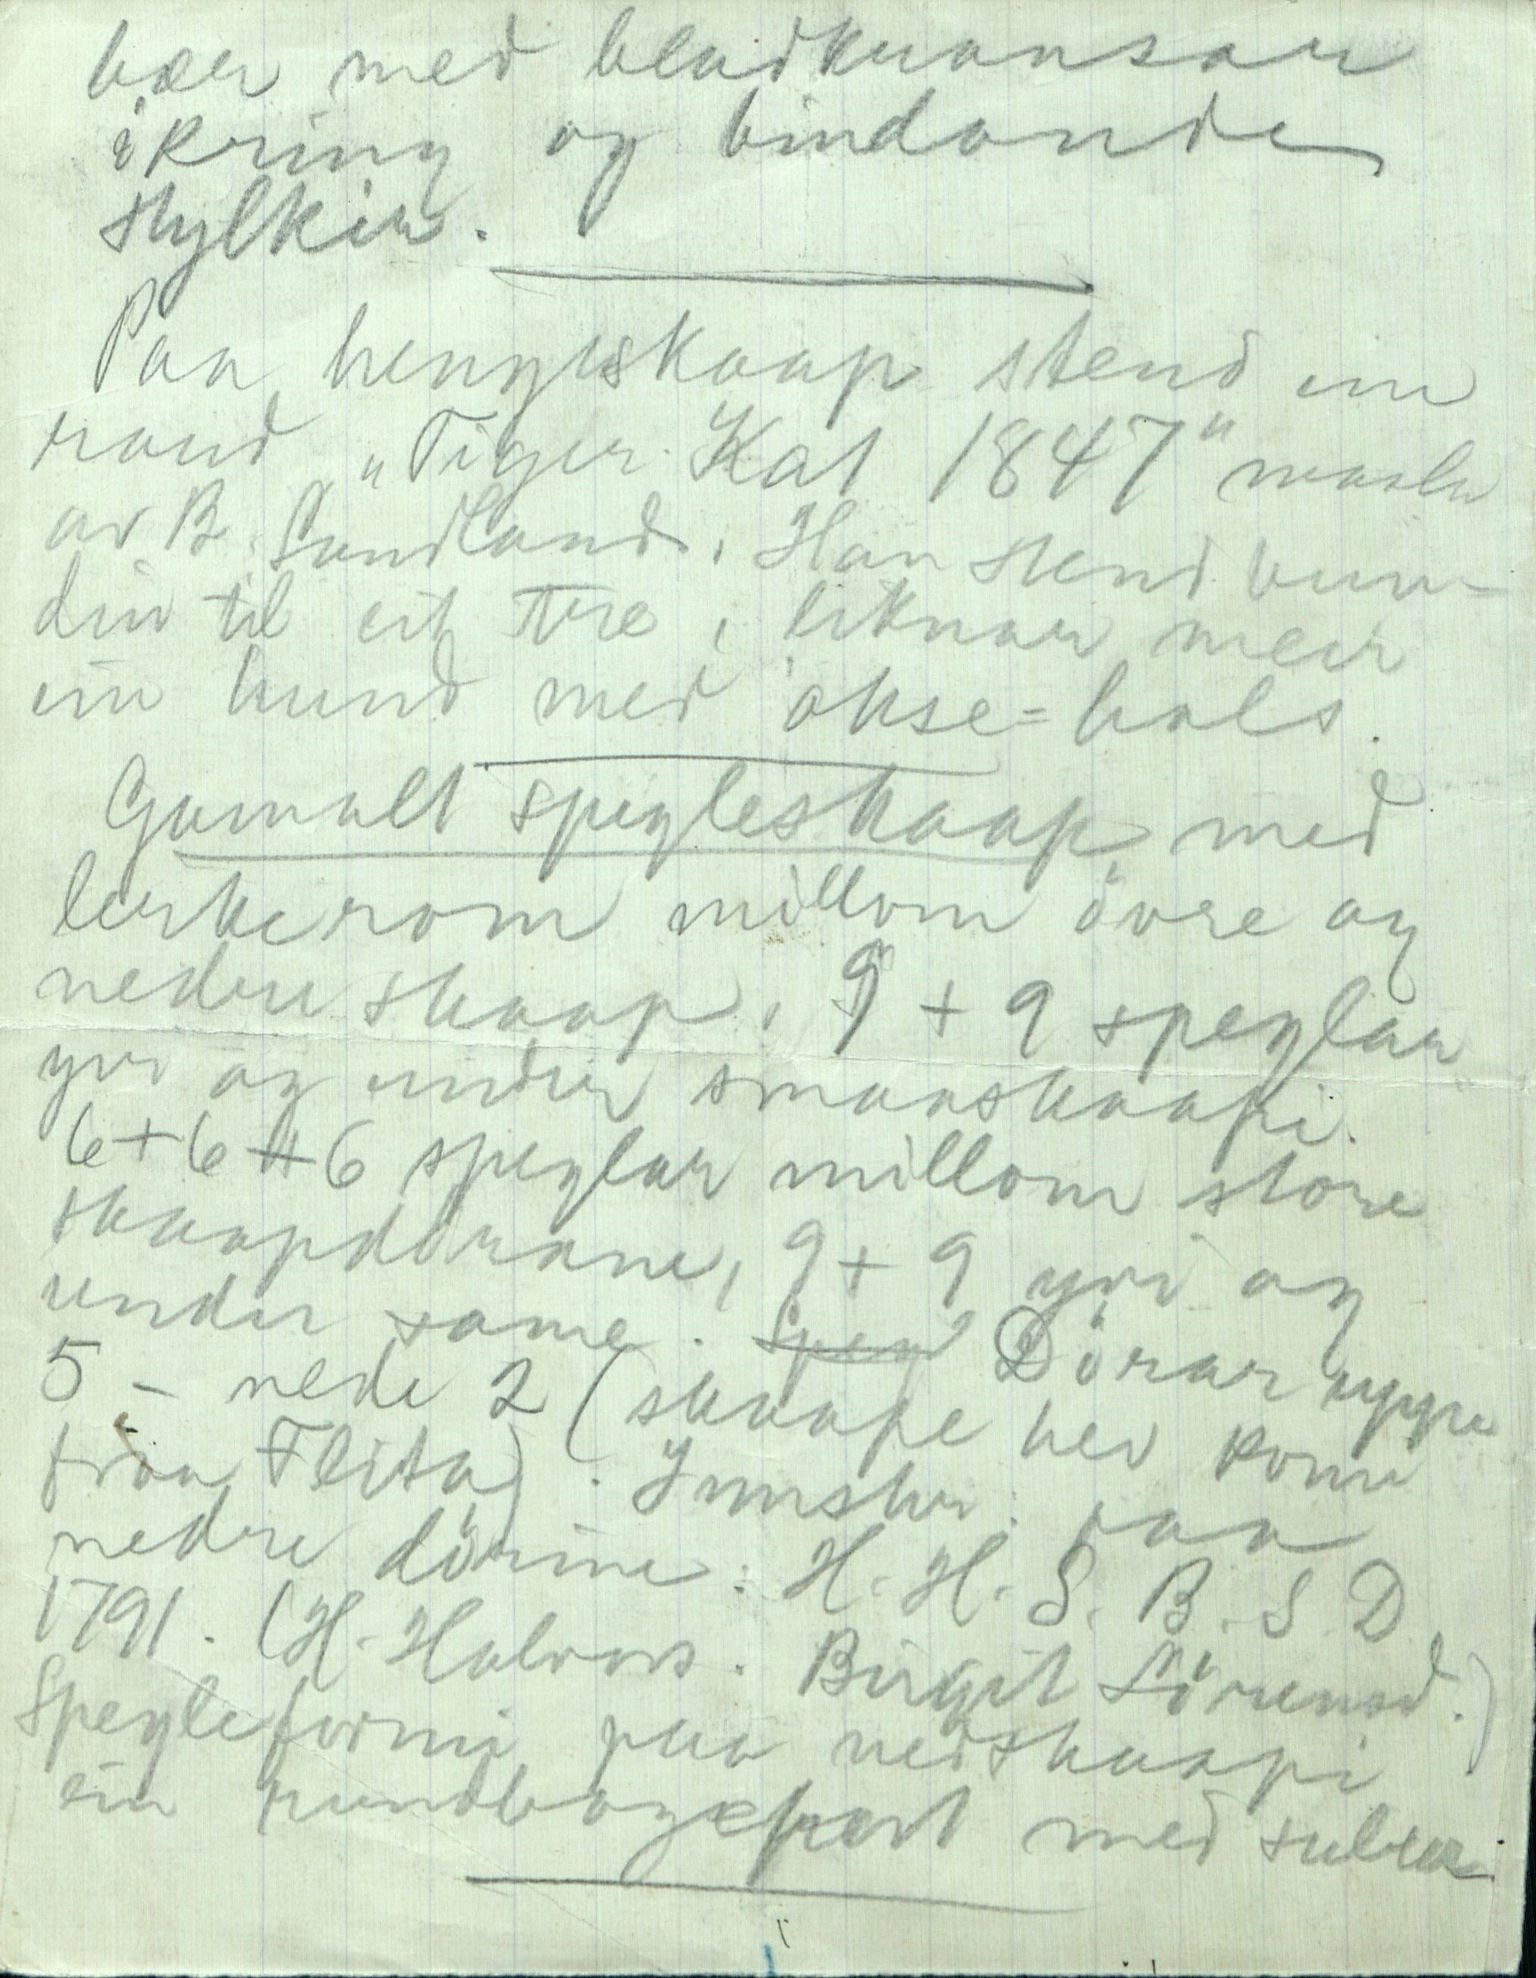 bær med bladkransar
ikring og bindande
stylkir.
Paa hengjeskaap stend ein
raud „Tiger Kat 1847" maala
av B. Sandland. Han stend bun-
din til eit tre, liknar meir
ein hund med okse-hals.
Gamalt spegleskaap med
lerkerom millom övre og
nedre skaap, 9 + 9 speglar
yvi og under smaaskaapi.
6+6+6 speglar millom store
skaapdörane, 9 + 9 yvi og
under same. Speg Dörar uppe
5 - nede 2 (skaape hev kome
fraa Flita). Innskr. paa
nedre dörine: H. H. S. B. S. D.
1791. (H. Halvors. Birgit Sörensd.)
Spegleformi paa nedskaapi
ein rundbogeport med sulur